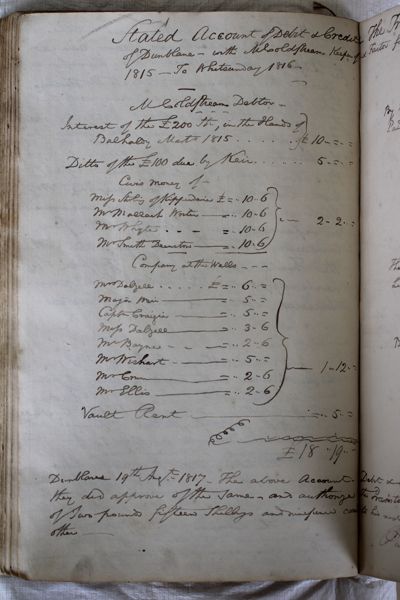 Stated Account of Debt & Credit
of Dunblane - with M Coldstream Keeper
1815 - To Whitsunday 1816 -
M Coldstream Debtor -
Interest of the £200 Str, in the Hands of
Balhaldy Marts 1815 . . . . . £ 10 - " - "
Ditto of the £100 due by Keir . . . . . 5 - " - "
Cures money of -
Miss Stirling of Kippendavie £ = " 10 - 6
Mr Mallach Writer - = " 10 - 6
Mr Whyte = " 10 - 6
Mr Smith Deanston = " 10 - 6
2 - 2 - "
Company at the Walls - - -
Mrs Dalzell . . . . . £ = " 6 " =
Major Weir = " 5 " =
Captn Craigie = " 5 " =
Miss Dalzell = " 3 - 6
Mr Bayne = " 2 - 6
Mr Wishart = " 5 " =
Mr Crum = " 2 - 6
Mr Ellis = " 2 - 6
1 - 12 - "
Vault Rent = " 5 " =
£ 18 " 19 " =
Dunblane 19th 1817 - The above Account
they did approve of the same - and authorize
of Two pounds fifteen Shillings and ninepence
other -
The
Factor
Debt &